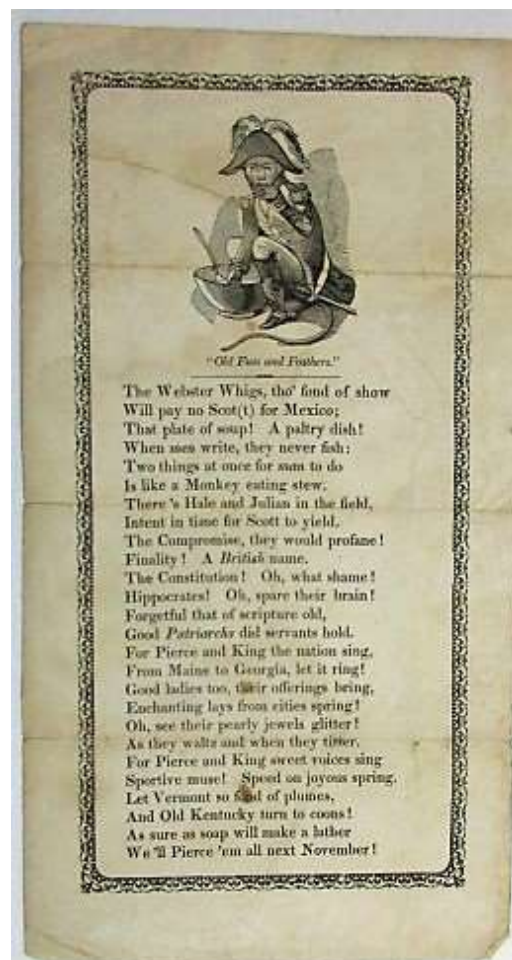 "Old Fuss and Feathers."
The Webster Whigs, tho' fond of show
Will pay no Scot(t) for Mexico;
That plate of soup! A paltry dish!
When men write, they never fish;
Two things at once for man to do
Is like a Monkey eating stew;
There's Hale and Julian in the field,
Intent in time for Scott to yield,
The Compromise, they would profane!
Finality! A British name.
The Constitution! Oh, what shame!
Hippocrates! Oh, spare their brain!
Forgetful that of scripture old,
Good Patriarchs did servants hold.
For Pierce and King the nation sing,
From Maine to Georgia, let it ring!
Good ladies too, their offerings bring,
Enchanting lays from cities spring!
Oh, see their pearly jewels glitter!
As they waltz and when they titter.
For Pierce and King sweet voices sing
Sportive muse! Speed on joyous spring.
Let Vermont so fond of plumes,
And Old Kentucky turn to coons!
As sure as soap will make a lather
We'll Pierce 'em all next November!